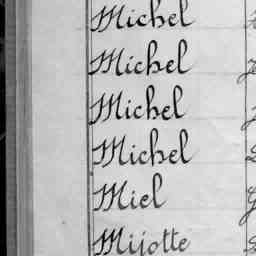 Michel
Michel
Michel
Michel
Miel
Mijotte